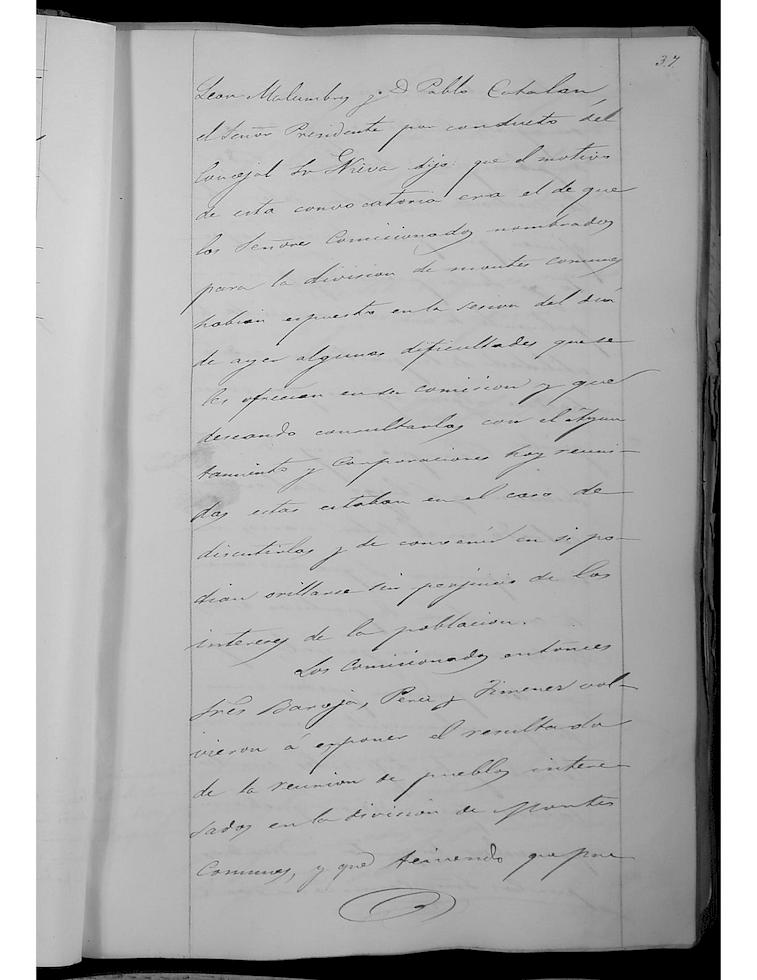 37
Leon Malumbres y D. Pablo Catalan,
el Señor Presidente por conducto del
Concejal Sr Nieva dijo: que el motivo
de esta convocatoria era el de que
los Señores Comisionados nombrados
para la division de montes comunes
habian espuesto en la sesion del dia
de ayer algunas dificultades que se
les ofrecian en su comision y que
deseando consultarlas con el Ayun
tamiento y Corporaciones hoy reuni-
das estas estaban en el caso de
discutirlas y de convenir en si po-
dian orillarse sin perjuicio de los
intereses de la poblacion.
Los Comisionados entonces
Sres Baroja, Perez y Jimenez vol-
vieron á esponer el resultado
de la reunion de pueblos intere-
sados en la division de Montes
Comunes, y que teniendo que